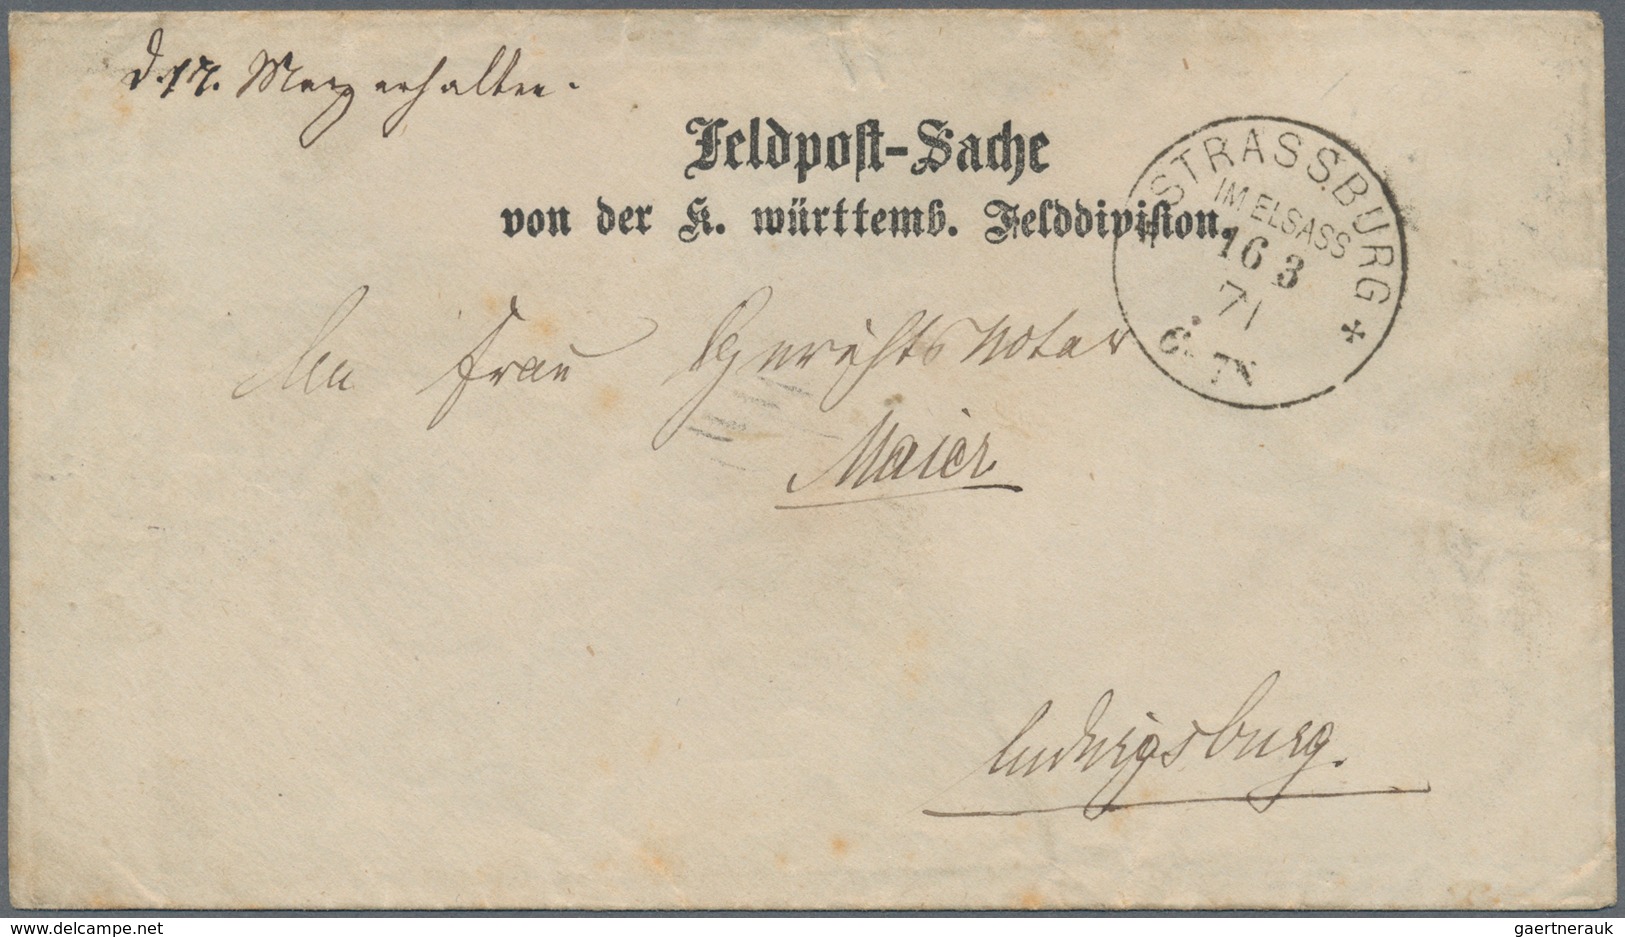 d. 17. Merz erhalten.
Feldpost-Sache
von der K. württemb. Felddivision.
STRASSBURG
IM ELSASS
16 3
71
6-7N
An Frau Gerichtsnotar
Maier
Ludwigsburg.
delcampe.net
gaertnerauk